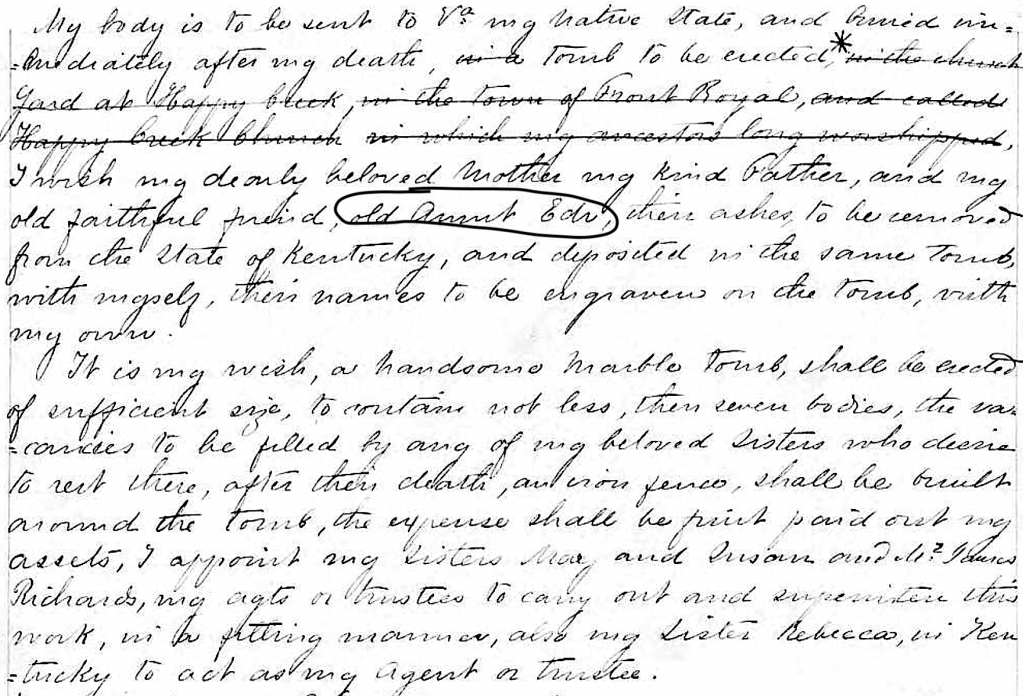 My body is to be sent to Va my native State, and buried im=
=mediately after my death, in a tomb to be erected, * in the church
Yard at Happy Creek, in the town of Front Royal, and called
Happy Creek Church in which my ancestors long worshipped,
I wish my dearly beloved Mother my kind Father, and my
old faithful friend, old Aunt Edy, their ashes, to be removed
from the State of Kentucky, and deposited in the same tomb,
with myself, their names to be engraven on the tomb, with
my own.
It is my wish, a handsome marble tomb, shall be erected
of sufficient size, to contain not less, then seven bodies, the va=
=cancies to be filled by any of my beloved Sisters who desire
to rest there, after their death, an iron fence, shall be built
around the tomb, the expense shall be first paid out my
assets, I appoint my Sisters May and Susan and Mr. James
Richards, my agts or trustees to carry out and superintend this
work, in a fitting manner, also my Sister Rebecca, in Ken
=tucky to act as my agent or trustee.